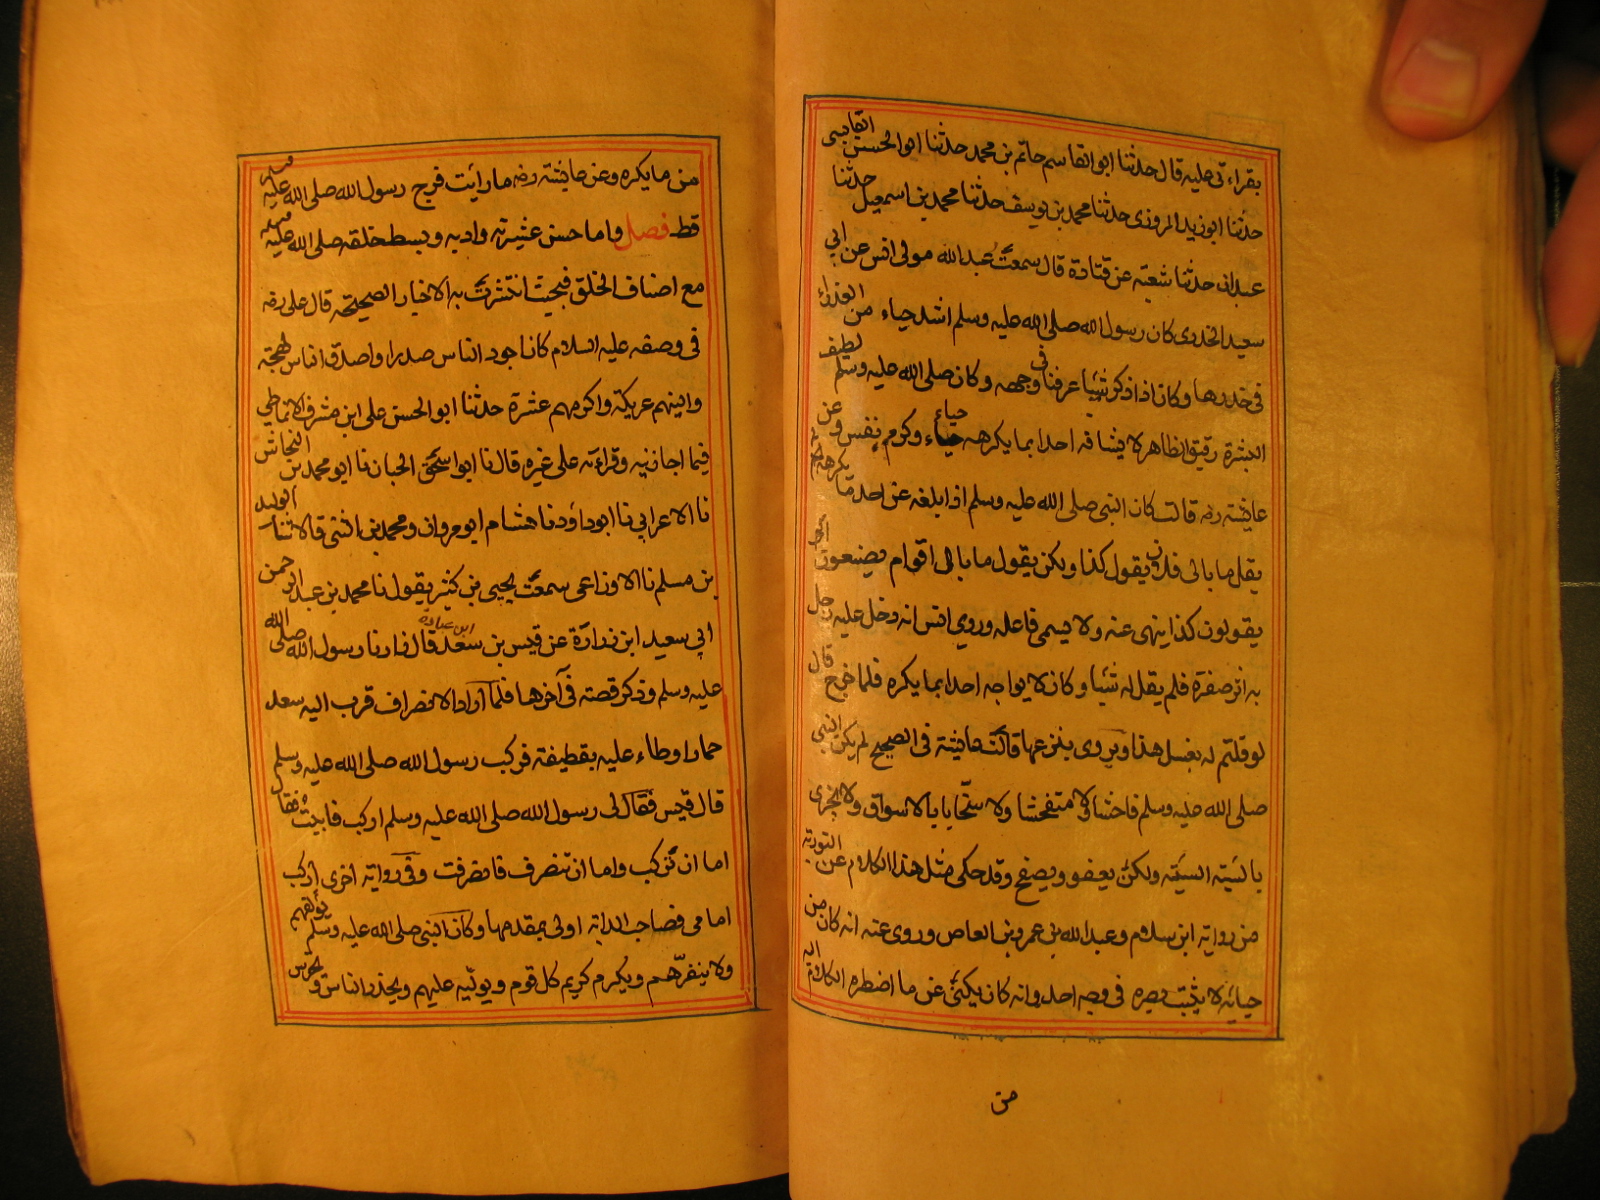 بقراءتى عليه قال حدثنا ابوالقاسم حاتم بن محمد حدثنا ابوالحسن القابسى
حدثنا ابوزيد المروزى حدثنا محمد بن يوسف حدثنا محمد بن اسمعيل حدثنا
عبدان حدثنا شعبته عن قتادة قال سمعت عبدالله مولى انس عن ابي
سعيد الخدرى كان رسول الله صلى الله عليه وسلم اشد حياء من العذراء
فى خدرها وكان اذا ذكر شيئا عرفنا فى وجهه وكان صلى الله عليه وسلم لطيف
البشرة رقيق الظاهر لا يشافه احدا بما يكرهه حياء حياء وكرم نفس وعن
عايشته رضه قالت كان النبى صلى الله عليه وسلم اذا بلغه عن احد ما يكرهه لم
يقل ما بال فلان يقول كذا ولكن يقول ما بال اقوام يصنعون او
يقولون كذا ينهى عنه ولا يسمى فاعله وروى انس انه دخل عليه رجل
به اثر صفرة فلم يقل له شيئا وكان لا يواجه احدا بما يكره فلما خرج قال
لو قلتم له يغسل هذا ويروى ينزعها قالت عايشة فى الصحيح لم يكن النبى
صلى الله عليه وسلم فاحشا ولا متفحشا ولا سخابا بالاسواق ولا يجزى
بالسيئه السيئه ولكن يعفو ويصفح وقد حكى مثل هذا الكلام عن التوريه
من روايه ابن سلام وعبدالله بن عمرو بن العاص وروى عنه انه كان من
حيائه لا يثبت بصره فى وجه احد وانه كان يكنى عن ما اضطره الكلام اليه
من
من ما يكره وعن عايشته رضه ما رايت فرج رسول الله صلى الله عليه وسلم
قط فصل واما حسن عشرته وادبه وبسط خلقه صلى الله عليه وسلم
مع اصناف الخلق فبحيث انتشرت به الاخبار الصحيحه قال على رضه
فى وصفه عليه السلام كان اجود الناس صدرا واصدق الناس لهجه
والينهم عريكة واكرمهم عشرة حدثنا ابوالحسن على ابن مشرف الانماطي
فيما اجازنيه وقراته على غيره قال نا ابواسحق الحبان نا ابومحمد بن النحاش
نا الاعرابي نا ابوداود نا هشام ابومروان ومحمد بن المثنى قالا ثنا الوليد
بن مسلم نا الاوزاعى سمعت يحيى بن كثير يقول نا محمد بن عبدالرحمن
ابي سعيد ابن زرارة عن قيس بن سعد ابن عبادة قال زارنا رسول الله صلى الله
عليه وسلم وذكر قصته فى آخرها فلما اراد الانصراف قرب اليه سعد
حمارا وطاء عليه بقطيفة فركب رسول الله صلى الله عليه وسلم
قال قيس فقال لى رسول الله صلى الله عليه وسلم اركب فابيت فقال
اما ان تركب واما ان تنصرف فانصرفت وفى روايته اخرى اركب
امامى فصاحب الدابة اولى بمقدمها وكان النبى صلى الله عليه وسلم يؤلفهم
ولا ينفرهم ويكرم كريم كل قوم ويوليه عليهم ويحذر الناس ويحترس